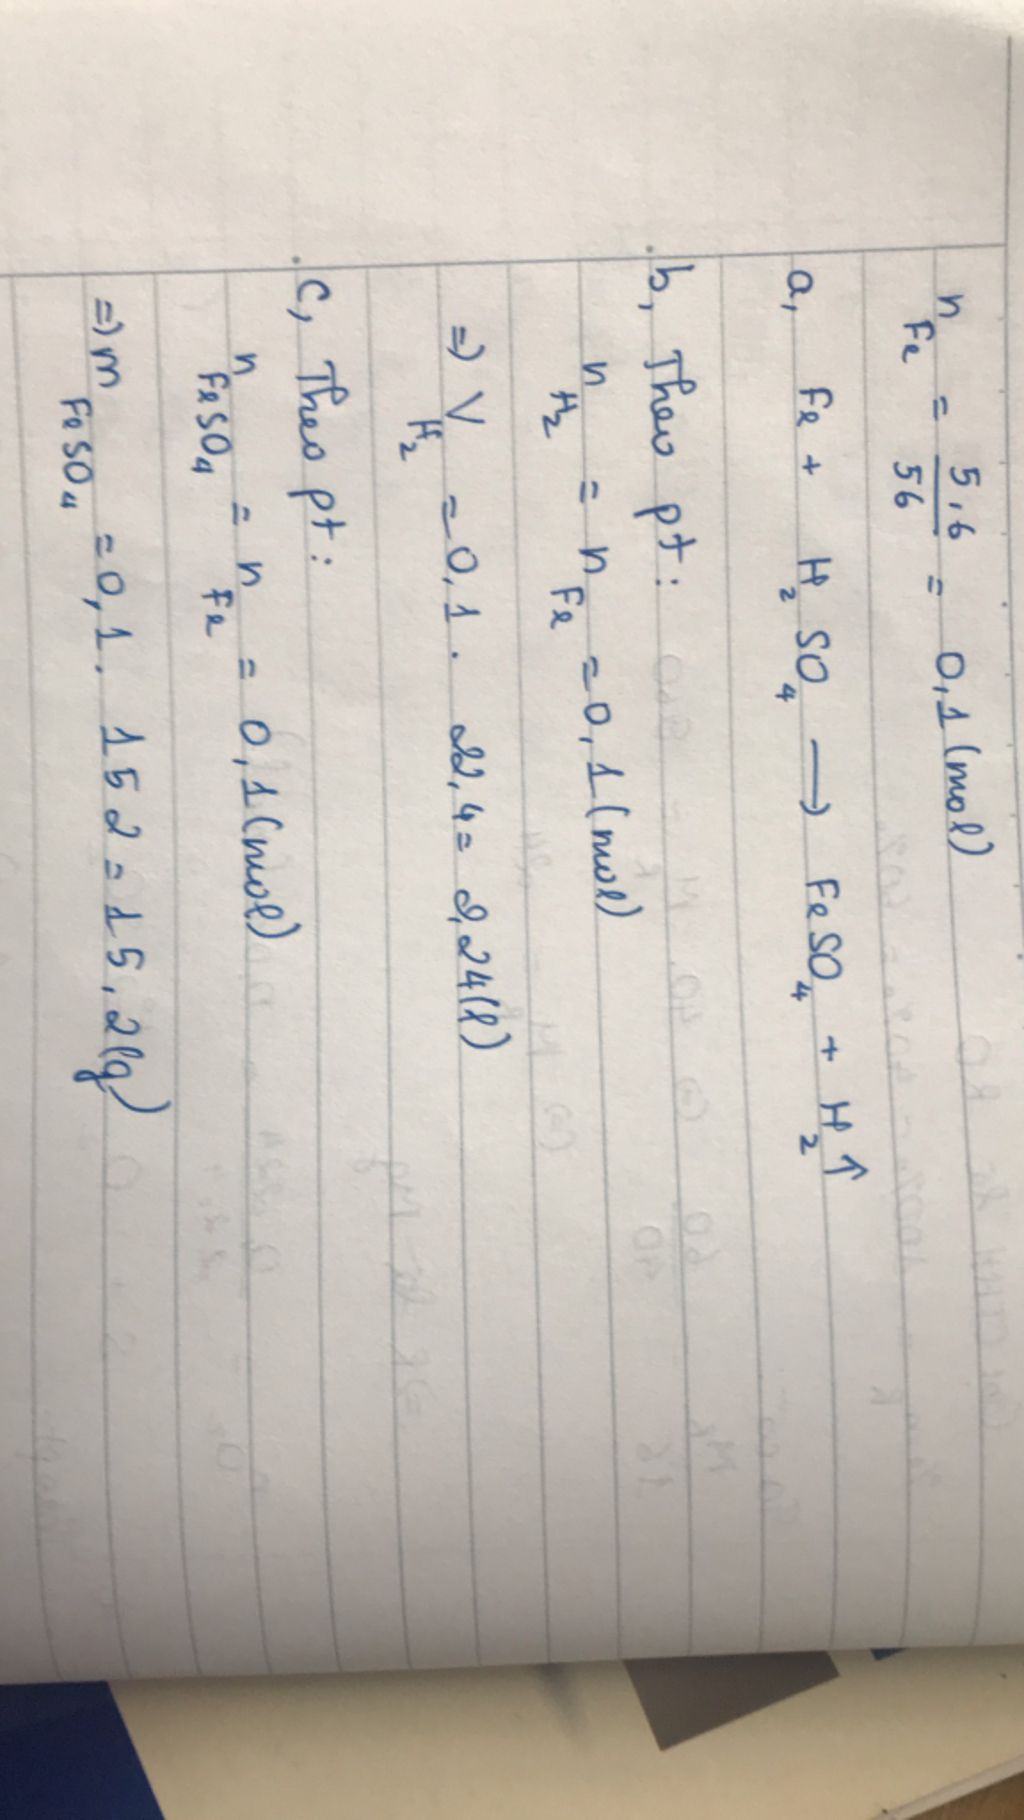 n Fe = 5,6/56 = 0,1 (mol)
a, Fe + H₂SO₄ → FeSO₄ + H₂↑
b, Theo pt:
n H₂ = n Fe = 0,1 (mol)
=> V H₂ = 0,1 . 22,4 = 2,24 (l)
c, Theo pt:
n FeSO₄ = n Fe = 0,1 (mol)
=> m FeSO₄ = 0,1 . 152 = 15,2 (g)